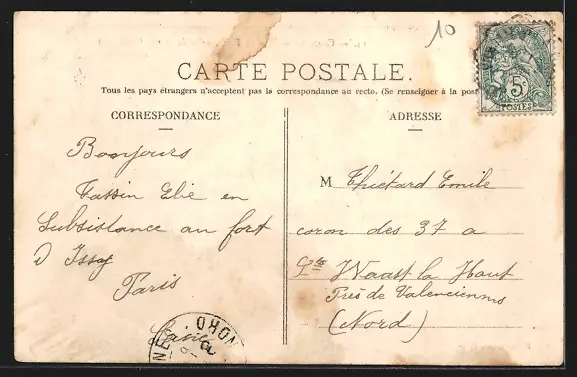 10
CARTE POSTALE.
Tous les pays étrangers n'acceptent pas la correspondance au recto. (Se renseigner à la post
CORRESPONDANCE
Bonjours
Fassin Elie en
Subsistance au fort
D Issy
Paris
ADRESSE
M Thiétard Emile
coron des 37 a
Waast la Haut
Près de Valenciennes
(Nord)
5c
POSTES
NORD